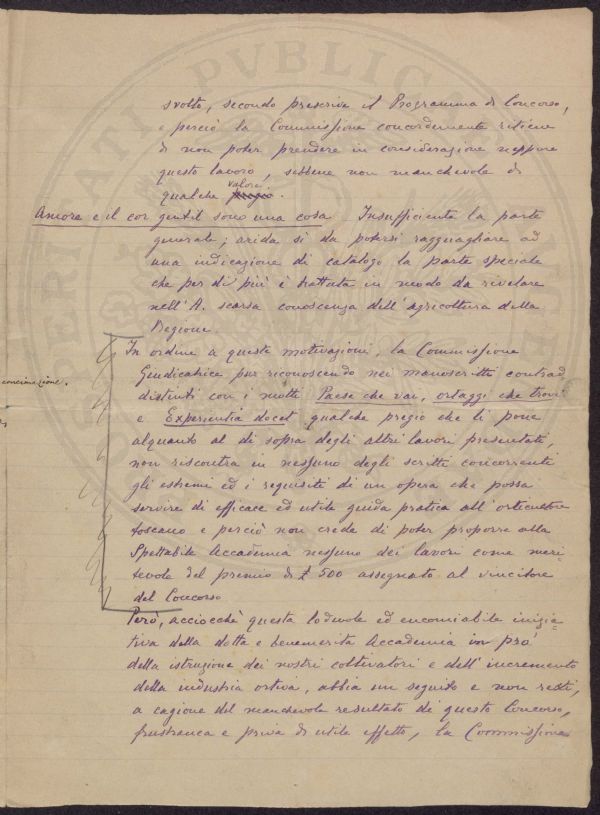 svolto, secondo prescrive il Programma di Concorso,
e perciò la Commissione concordemente ritiene
di non poter prendere in considerazione neppure
questo lavoro, sebbene non manchevole di
valore
qualche pregio.
Amore e il cor gentil sono una cosa Insufficiente la parte
generale; arida sì da potersi ragguagliare ad
una indicazione di catalogo la parte speciale
che per di più è trattata in modo da rivelare
nell'A. scarsa conoscenza dell'agricoltura della
Regione.
In ordine a queste motivazioni, la Commissione
Giudicatrice pur riconoscendo nei manoscritti contrad
distinti con i motti Paese che vai, ortaggi che trovi
concimazione.
e Experientia docet qualche pregio che li pone
alquanto al di sopra degli altri lavori presentati,
non riscontra in nessuno degli scritti concorrenti
gli estremi ed i requisiti di un opera che possa
servire di efficace ed utile guida pratica all'orticultore
toscano e perciò non crede di poter proporre alla
Spettabile Accademia nessuno dei lavori come meri-
tevole del premio di £ 500 assegnato al vincitore
del Concorso
Però, acciocchè questa lodevole ed encomiabile inizia-
tiva della dotta e benemerita Accademia in pro'
della istruzione dei nostri coltivatori e dell'incremento
della industria ortiva, abbia un seguito e non resti,
a cagione del manchevole resultato di questo Concorso,
frustranea e priva di utile effetto, la Commissione